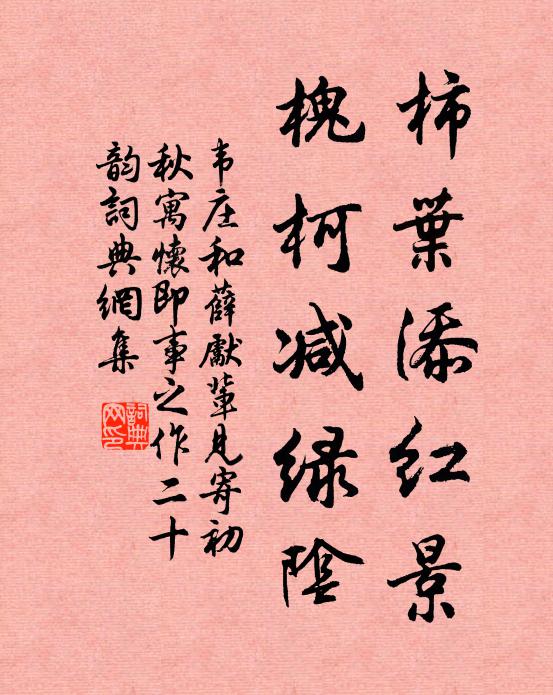 柿葉添红景
槐柯减緑陰
韦庄和薛獻輩見寄初
秋寓懷即事之作二十
韵詞典網集
詞典网印